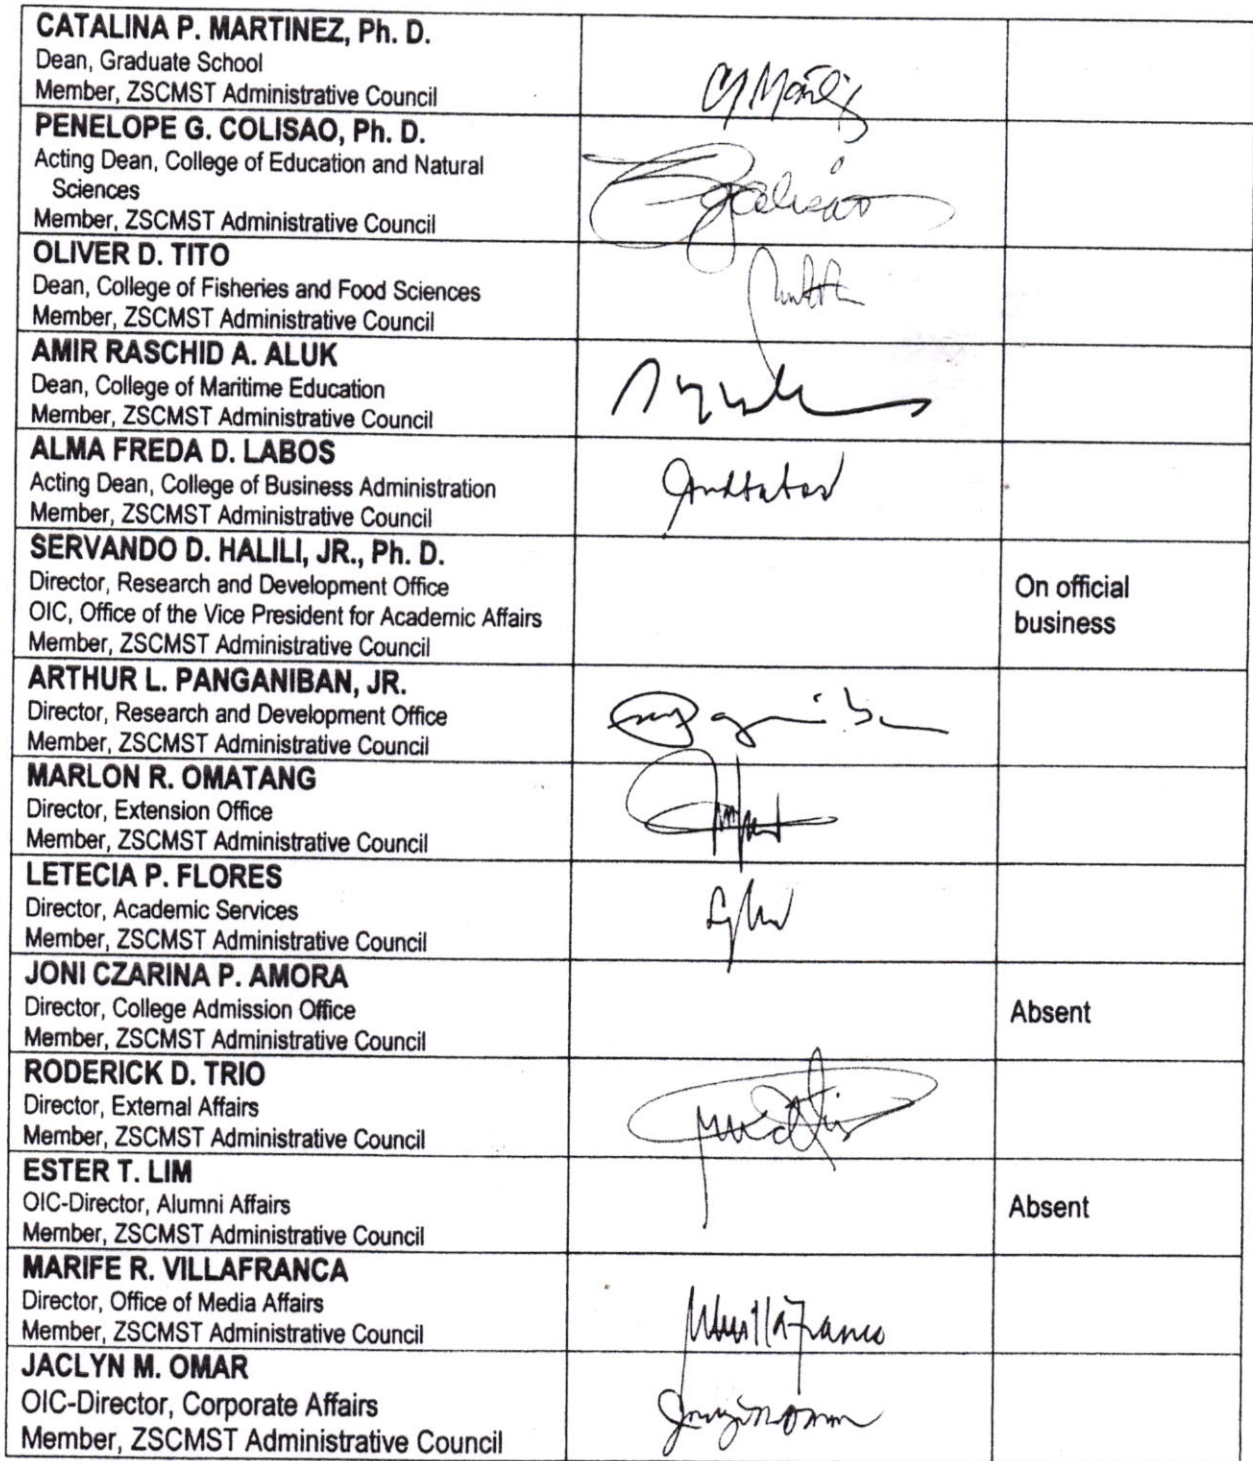 CATALINA P. MARTINEZ, Ph. D.
Dean, Graduate School
Member, ZSCMST Administrative Council
PENELOPE G. COLISAO, Ph. D.
Acting Dean, College of Education and Natural
Sciences
Member, ZSCMST Administrative Council
OLIVER D. TITO
Dean, College of Fisheries and Food Sciences
Member, ZSCMST Administrative Council
AMIR RASCHID A. ALUK
Dean, College of Maritime Education
Member, ZSCMST Administrative Council
ALMA FREDA D. LABOS
Acting Dean, College of Business Administration
Member, ZSCMST Administrative Council
SERVANDO D. HALILI, JR., Ph. D.
Director, Research and Development Office
OIC, Office of the Vice President for Academic Affairs
Member, ZSCMST Administrative Council
On official
business
ARTHUR L. PANGANIBAN, JR.
Director, Research and Development Office
Member, ZSCMST Administrative Council
MARLON R. OMATANG
Director, Extension Office
Member, ZSCMST Administrative Council
LETECIA P. FLORES
Director, Academic Services
Member, ZSCMST Administrative Council
JONI CZARINA P. AMORA
Director, College Admission Office
Member, ZSCMST Administrative Council
Absent
RODERICK D. TRIO
Director, External Affairs
Member, ZSCMST Administrative Council
ESTER T. LIM
OIC-Director, Alumni Affairs
Member, ZSCMST Administrative Council
Absent
MARIFE R. VILLAFRANCA
Director, Office of Media Affairs
Member, ZSCMST Administrative Council
JACLYN M. OMAR
OIC-Director, Corporate Affairs
Member, ZSCMST Administrative Council